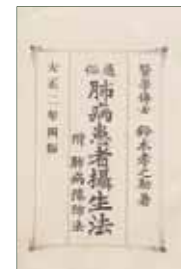 醫學博士 鈴木孝之助著
通俗
肺病患者攝生法
附 肺病豫防法
大正二年四版